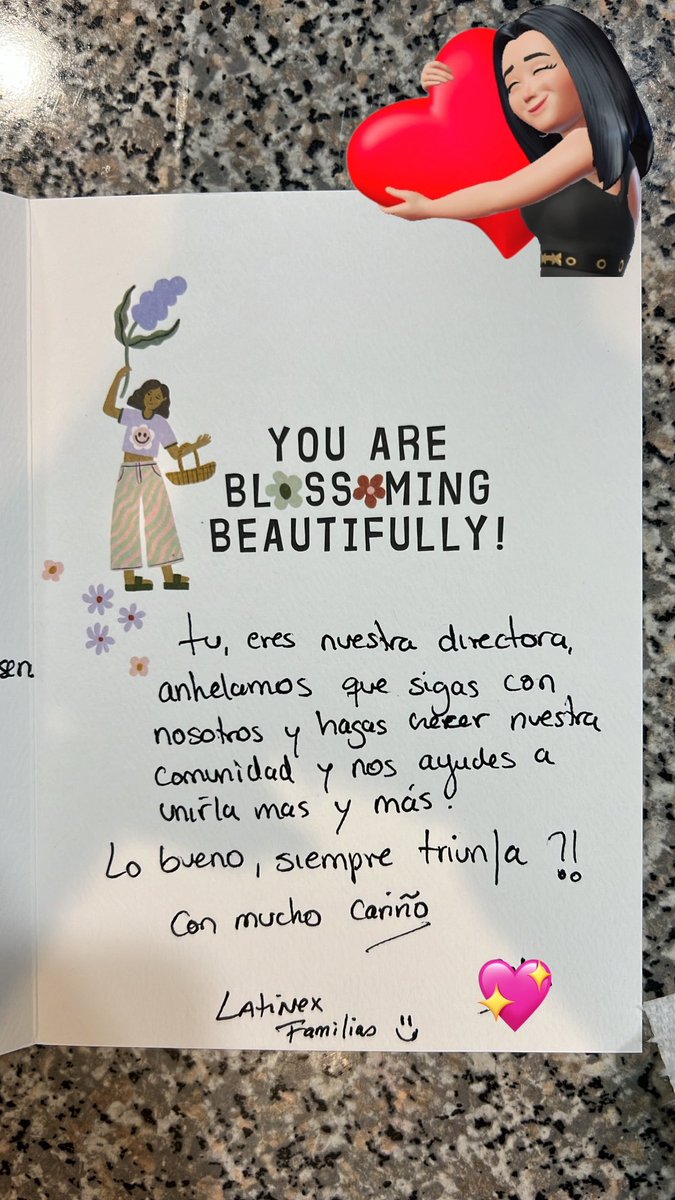 YOU ARE
BLOSSOMING
BEAUTIFULLY!
sen
tu, eres nuestra directora,
anhelamos que sigas con
nosotros y hagas crecer nuestra
comunidad y nos ayudes a
unirla mas y más.
Lo bueno, siempre triunfa ?!
con mucho cariño
LATINEX
Familias